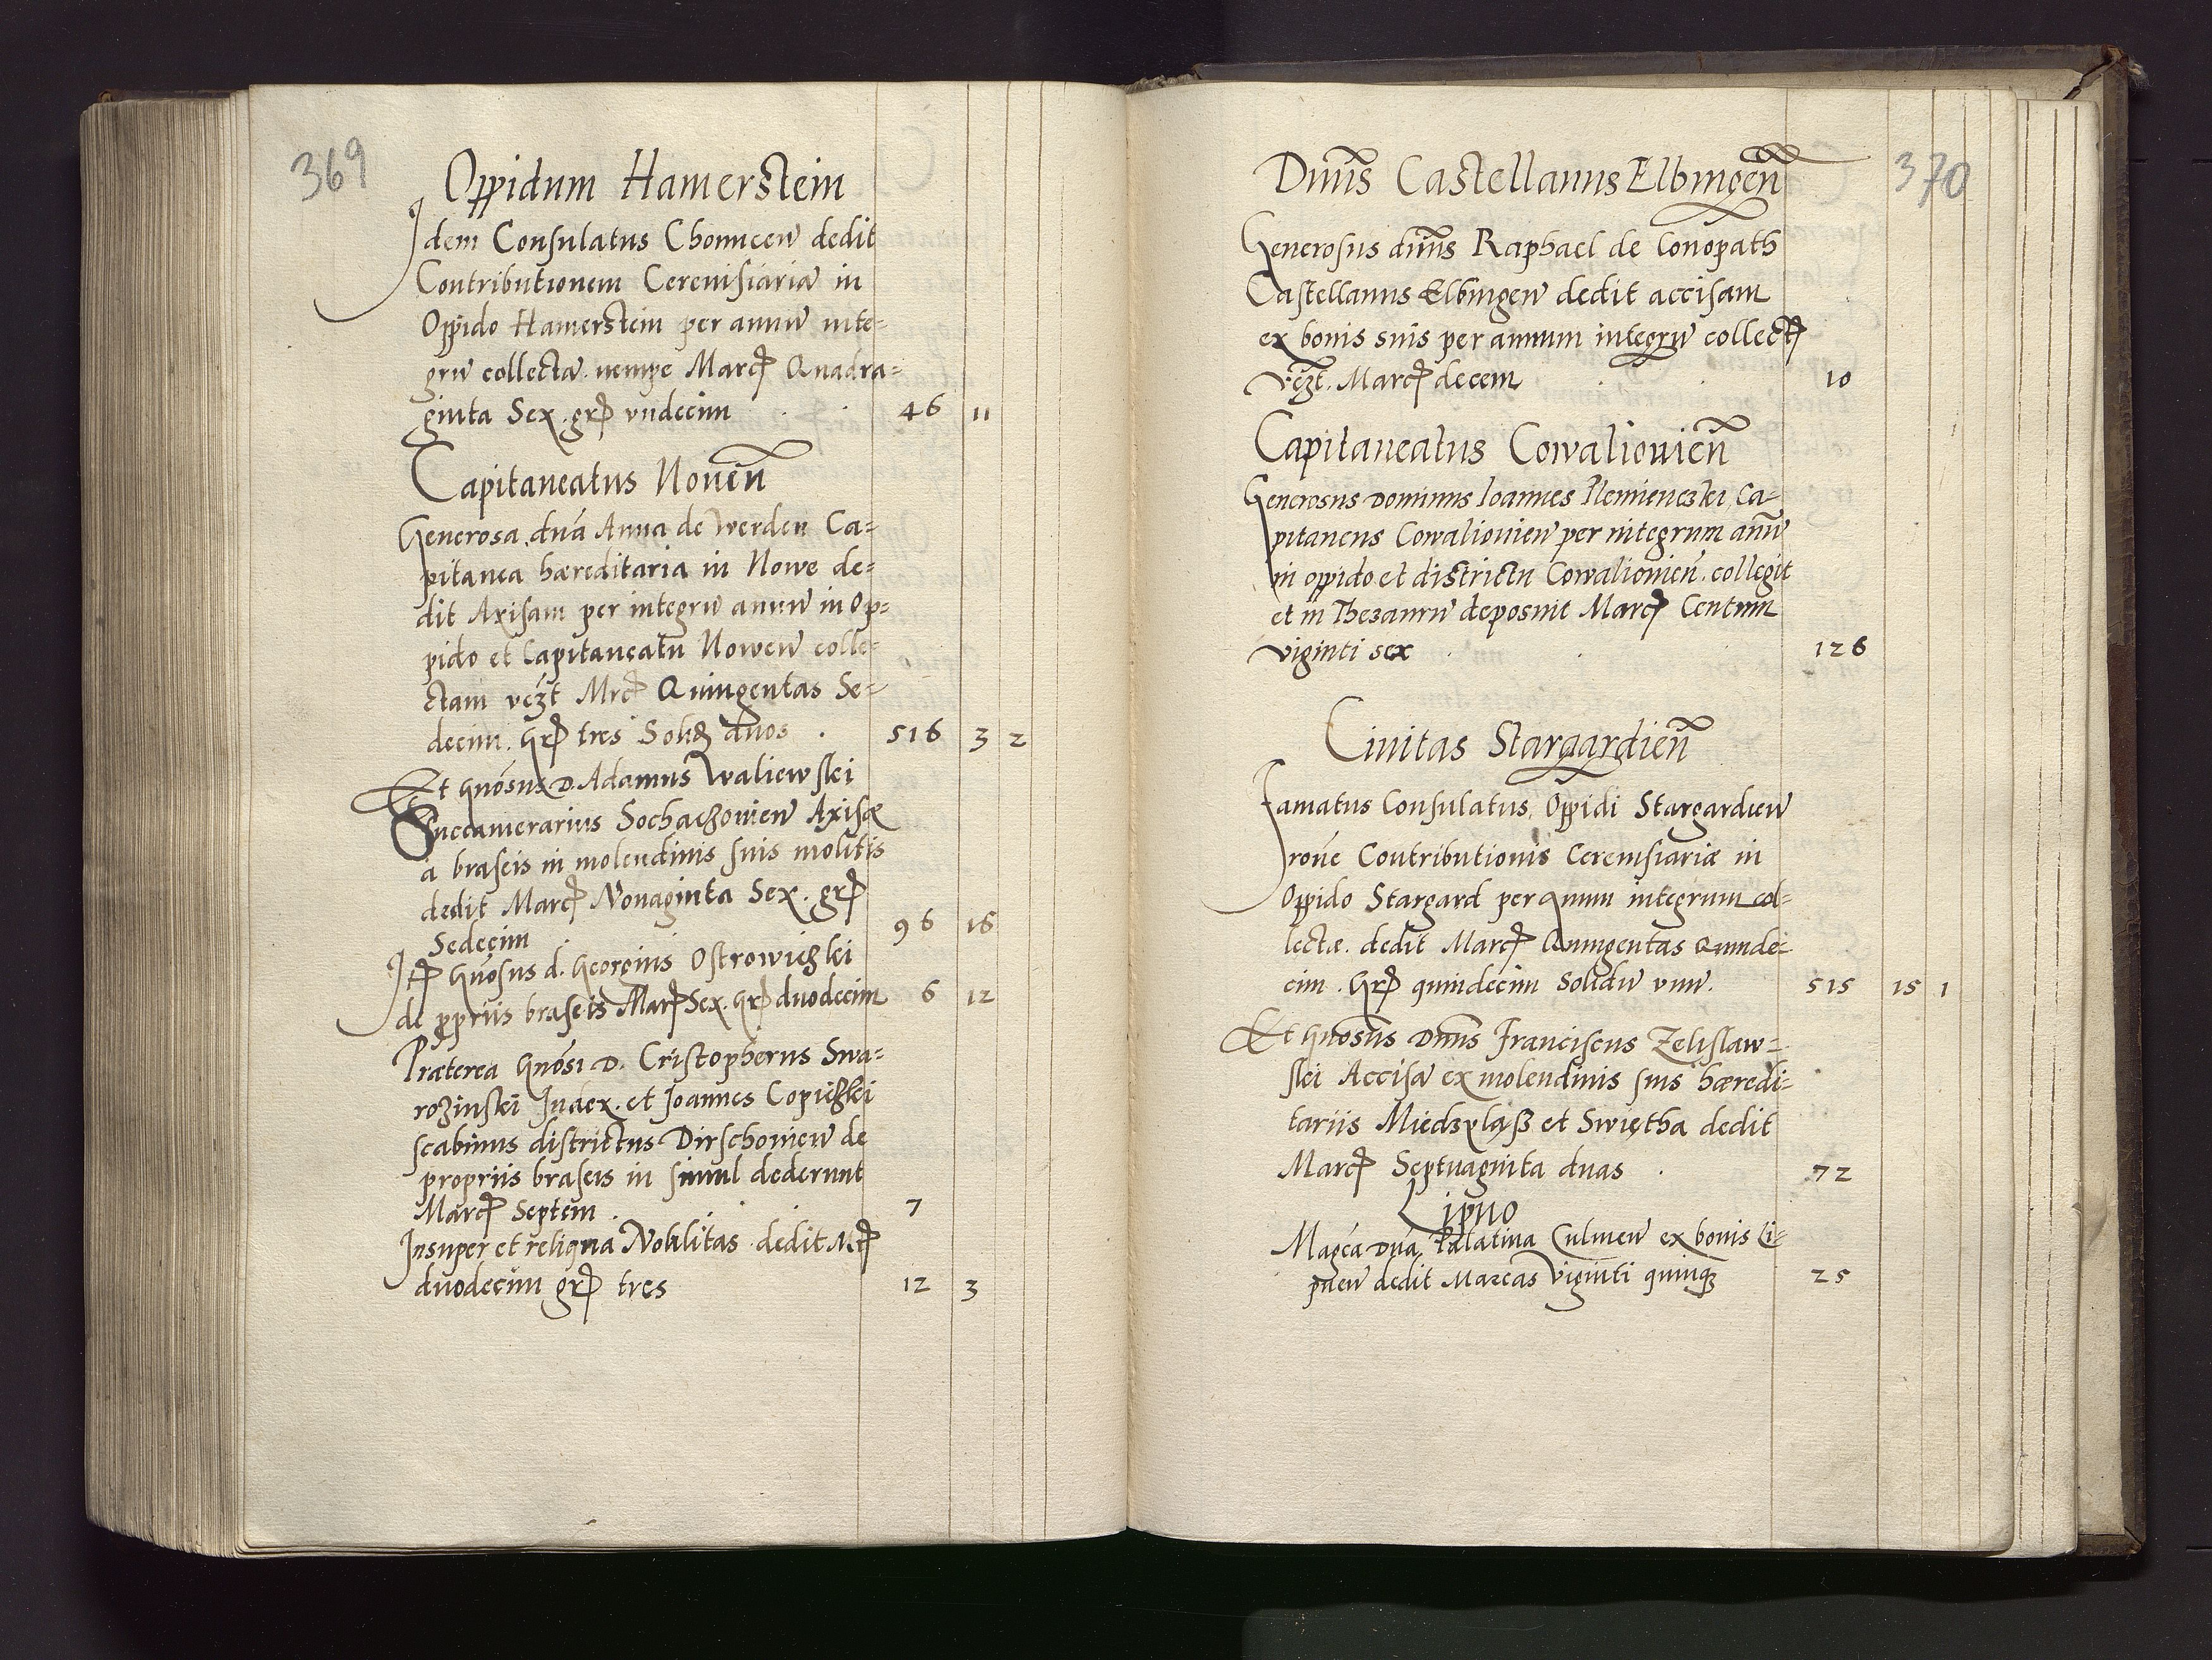 369
Oppidum Hamerstein
Idem Consulatus Choniceñ dedit
Contributionem Cerevisiariā in
Oppido Hamerstein per annū inte=
grū collectā nempe Marc Quadra=
ginta Sex. gr undecim . . 46 11
Capitaneatus Noueñ
Generosa dnā Anna de Werden Ca=
pitanea hæreditaria in Nowe de=
dit Axisam per integrū annū in Op=
pido et Capitaneatu Noweñ colle=
ctam vczt Mrc Quingentas Se=
decim. Gr tres Solid duos . 516 3 2
Et Gnōsus D. Adamus Waliewskei
Succamerarius Sochaczouieñ Axisæ
a braseis in molendinis suis molitis
dedit Marc Nonaginta Sex. gr
Sedecim 96 16
Itē Gnōsus d. Georgius Ostrowiczkei
de ppriis braseis Marc Sex. Gr duodecim 6 12
Præterea Gnōsi D. Cristopherus Swa=
rozinskei Judex. et Joannes Copiczkei
scabinus districtus Dirschouieñ de
propriis braseis in simul dederunt
Marc Septem . . . 7
Insuper et reliqua Nobilitas dedit Mr
duodecim gr tres 12 3
370
Dnūs Castellanus Elbingeñ
Generosus dnūs Raphael de Conopath
Castellanus Elbingeñ dedit accisam
ex bonis suis per annum integrū collect
vczt. Marc decem . . 10
Capitaneatus Cowaliouieñ
Generosus Dominus Ioannes Plemieńczkei Ca=
pitaneus Cowaliouieñ per integrum annū
in oppido et districtu Cowaliouieñ. collegit
et in Thesaurū deposuit Marc Centum
viginti sex . . 126
Ciuitas Stargardieñ
Famatus Consulatus Oppidi Stargardieñ
rōne Contributionis Cereuisiariæ in
Oppido Stargard per annum integrum col=
lectæ. dedit Marc Quingentas Quinde=
cim. Gr quindecim Solidū unū. 515 15 1
Et Gnōsus Dnūs Franciscus Zelislaw=
skei Accisā ex molendinis suis hæredi=
tariis Miedzyląß et Swiętha dedit
Marc Septuaginta duas . 72
Lipno
Magcā Dnā Palatina Culmeñ ex bonis Li=
pneñ dedit Marcas Viginti quinq 25